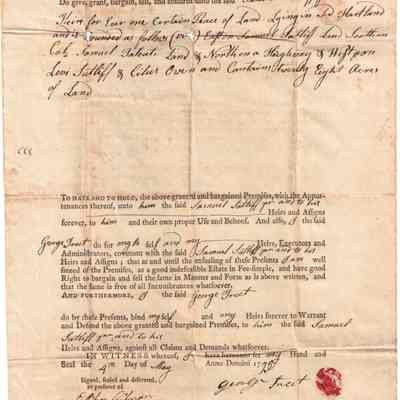 Do give, grant, bargain, sell, and
Heirs for Ever one Certain Piece of Land Lying in sd Hartland
and is Bounded as follows (viz) Easton Samuel Sutliff Land South on
Samuel Land & North on a Highway & West on
Levi Sutliff & Owen and Contains twenty Eight Acres
of Land
TO HAVE AND TO HOLD, the above granted and bargained Premises, with the Appur-
tenances thereof, unto him the said Samuel Sutliff Jr and to his
Heirs and Assigns
forever, to him and their own proper Use and Behoof. And also, I the said
George Treet do for my self and my Heirs, Executors and
Administrators, covenant with the said Samuel Sutliff Jr and to his
Heirs and Assigns; that at and until the ensealing of these Presents I am well
seized of the Premises, as a good indefeasible Estate in Fee-simple, and have good
Right to bargain and sell the same in Manner and Form as is above written, and
that the same is free of all Incumbrances whatsoever.
AND FURTHERMORE, I the said George Treet
do by these Presents, bind myself and my Heirs forever to Warrant
and Defend the above granted and bargained Premises, to him the said Samuel
Sutliff Jr and to his
Heirs and Assigns, against all Claims and Demands whatsoever.
IN WITNESS whereof, I have hereunto set my Hand and
Seal the 4th Day of May Anno Domini
Signed, sealed and delivered,
in presence of
George Treet